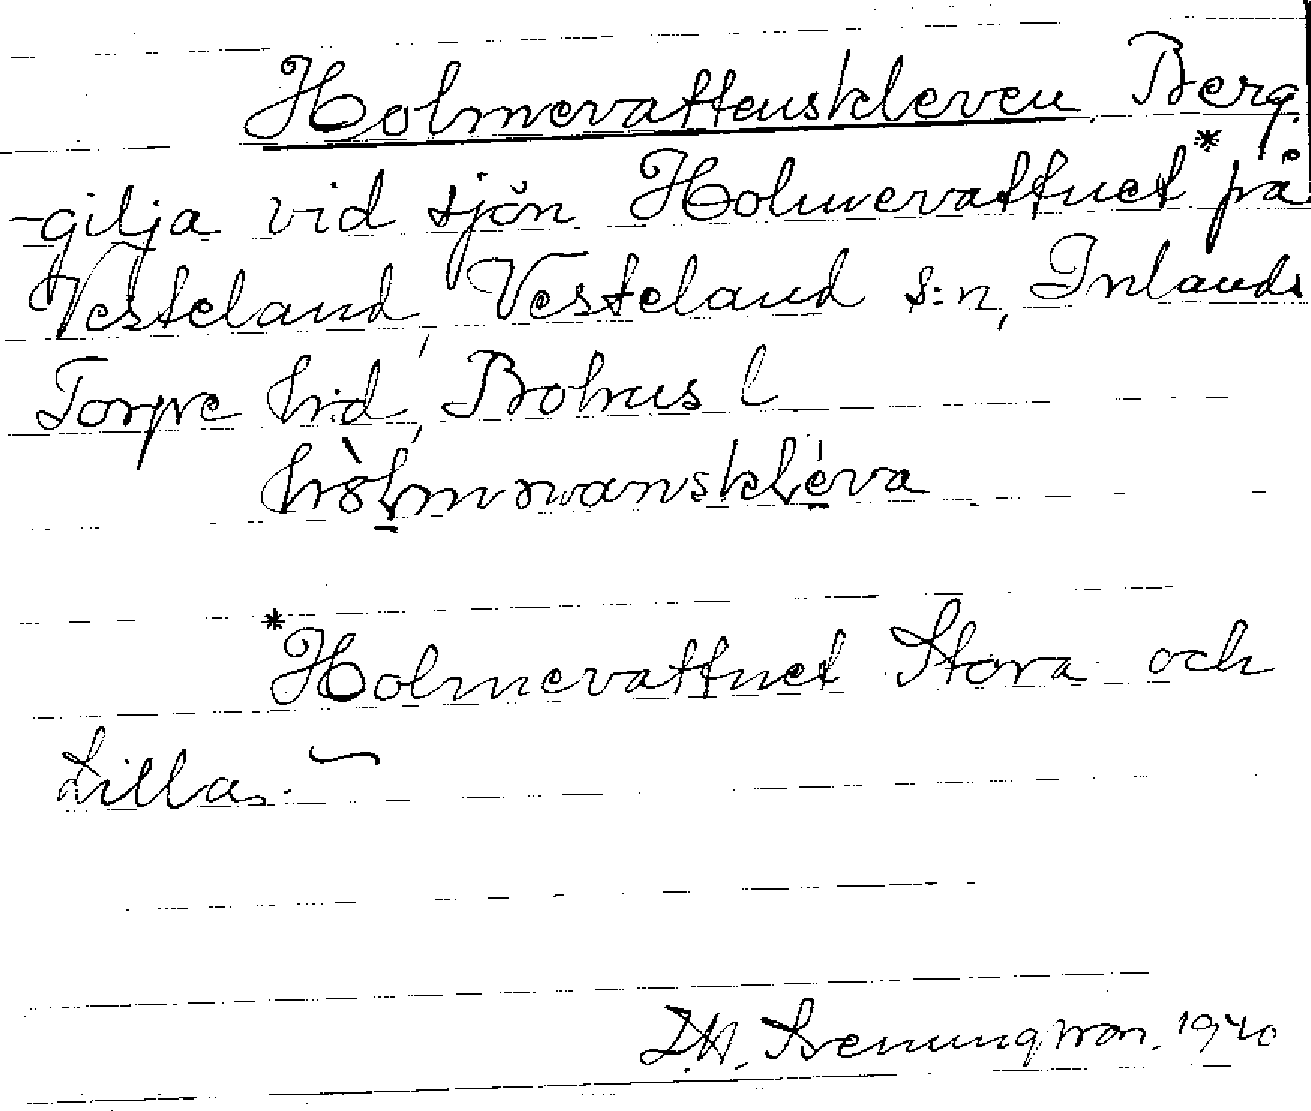 Holmevattenskleven Berg
-gilja vid sjön Holmevattnet* på
Vesteland, Vesteland s:n, Inlands
Torpe hrd, Bohus l
*Holmevattnet Stora och
Lilla.
1940